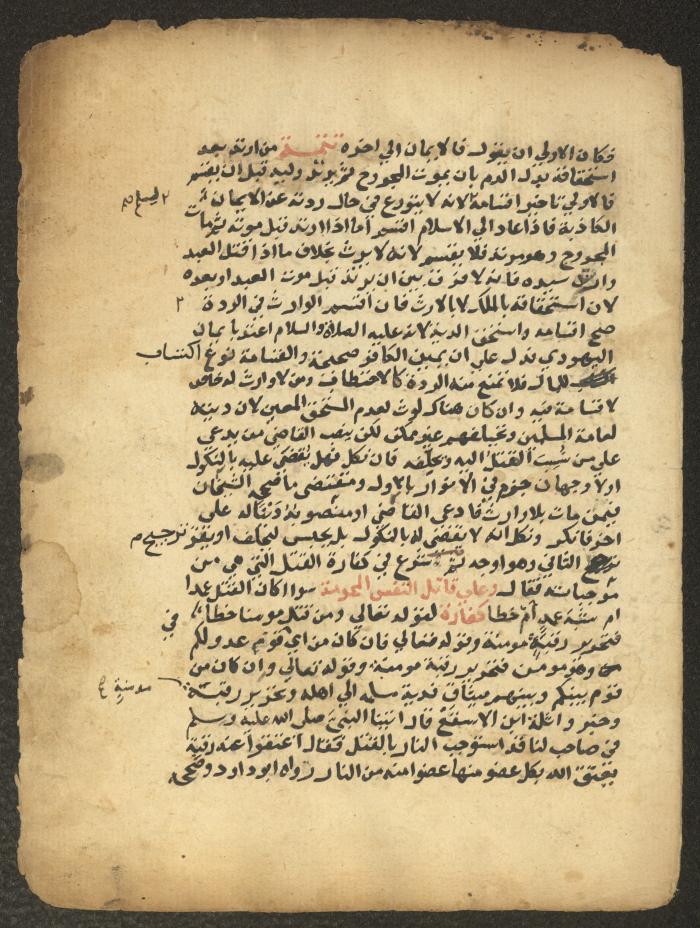 فكان الاولي ان يقول فالايمان الي اخره تتمة من ارتد بعد
استحقاقه بدل الدم بان يموت المجروح ثم يرتد وليه قبل ان يقسم
فالاولي تاخير اقسامه لانه لا يتورع في حال ردته عن الايمان
الكاذبة فاذا عاد الي الاسلام اقسم اما اذا ارتد قبل موته ثم مات
المجروح وهو مرتد فلا يقسم لانه لا يرث بخلاف ما اذا قتل العبد
وارتد سيده فانه لا فرق بين ان يرتد قبل موت العبد او بعده
لان استحقاقه بالملك لا بالارث فان اقسم الوارث في الردة
صح اقسامه واستحق الدية لانه عليه الصلاة والسلام اعتد بايمان
اليهودي فدل علي ان يمين الكافر صحيحة والقسامة نوع اكتساب
للمال فلا تمنع منه الردة كالاحتطاب ومن لا وارث له خاص
لا قسامة فيه وان كان هناك لوث لعدم المستحق المعين لان ديته
لعامة المسلمين وتحليفهم غير ممكن لكن ينصب القاضي من يدعي
علي من نسب القتل اليه ويحلفه فان نكل فهل يقضي عليه بالنكول
اولا وجهان جزم في الانوار بالاول ومقتضي ما صححه الشيخان
فيمن مات بلا وارث فادعي القاضي او منصوبه دينا له علي
اخر فانكر ونكل انه لا يقضي له بالنكول بل يحبس ليحلف او يقر ترجيح
الثاني وهو اوجه ثم شرع في كفارة القتل التي هي من
موجباته فقال وعلي قاتل النفس المحرمة سوا اكان القتل عمدا
ام شبه عمد ام خطا كفارة لقوله تعالي ومن قتل مومنا خطا
فتحرير رقبة مومنة وقوله تعالي فان كان من قوم عدو لكم
وهو مومن فتحرير رقبة مومنة وقوله تعالي وان كان من
قوم بينكم وبينهم ميثاق فدية مسلمة الي اهله وتحرير رقبة
وخبر واثلة ابن الاسقع قال اتينا النبي صلي الله عليه وسلم
في صاحب لنا قد استوجب النار بالقتل فقال اعتقوا عنه رقبة
يعتق الله بكل عضو منها عضوا منه من النار رواه ابو داود وصححه
مومنة